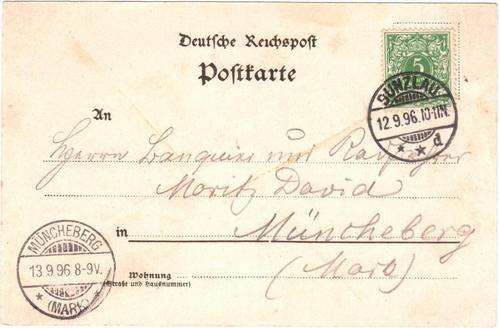 Deutsche Reichspost
Postkarte
5
BUNZLAU
12.9.96.10-11N.
* * d
An
Herrn Banquier und
Moritz David
in Müncheberg
(Mark)
Wohnung
(Straße und Hausnummer)
MÜNCHEBERG
13.9.96 8-9V.
* (MARK) *